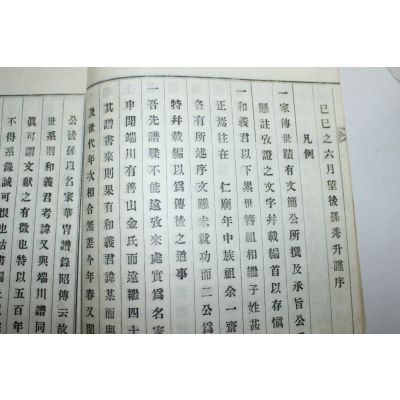 己巳之六月望後孫秀升謹序
凡例
一家傳世蹟有文簡公所撰及承旨公
懸註攷證之文字幷載編首以存愼
一和義君以下累世管組相繼子姓甚
正焉往在 仁廟年中族祖余一齋
各有所述序文雖未就功而二公爲
特幷載編以爲傳後之道事
一吾先譜牒不能遠攷來處實爲名家
申聞端川有善山金氏而遠繼四十
其譜書來則果有和義君諱某而與
及世代年次相合無差今年春又聞
公後孫以名家華冑譜錄昭傳云故
世系則和義君考諱又與端川譜同
眞可謂文獻之有徵也特以五百年
不得系錄誠可恨也姑書編